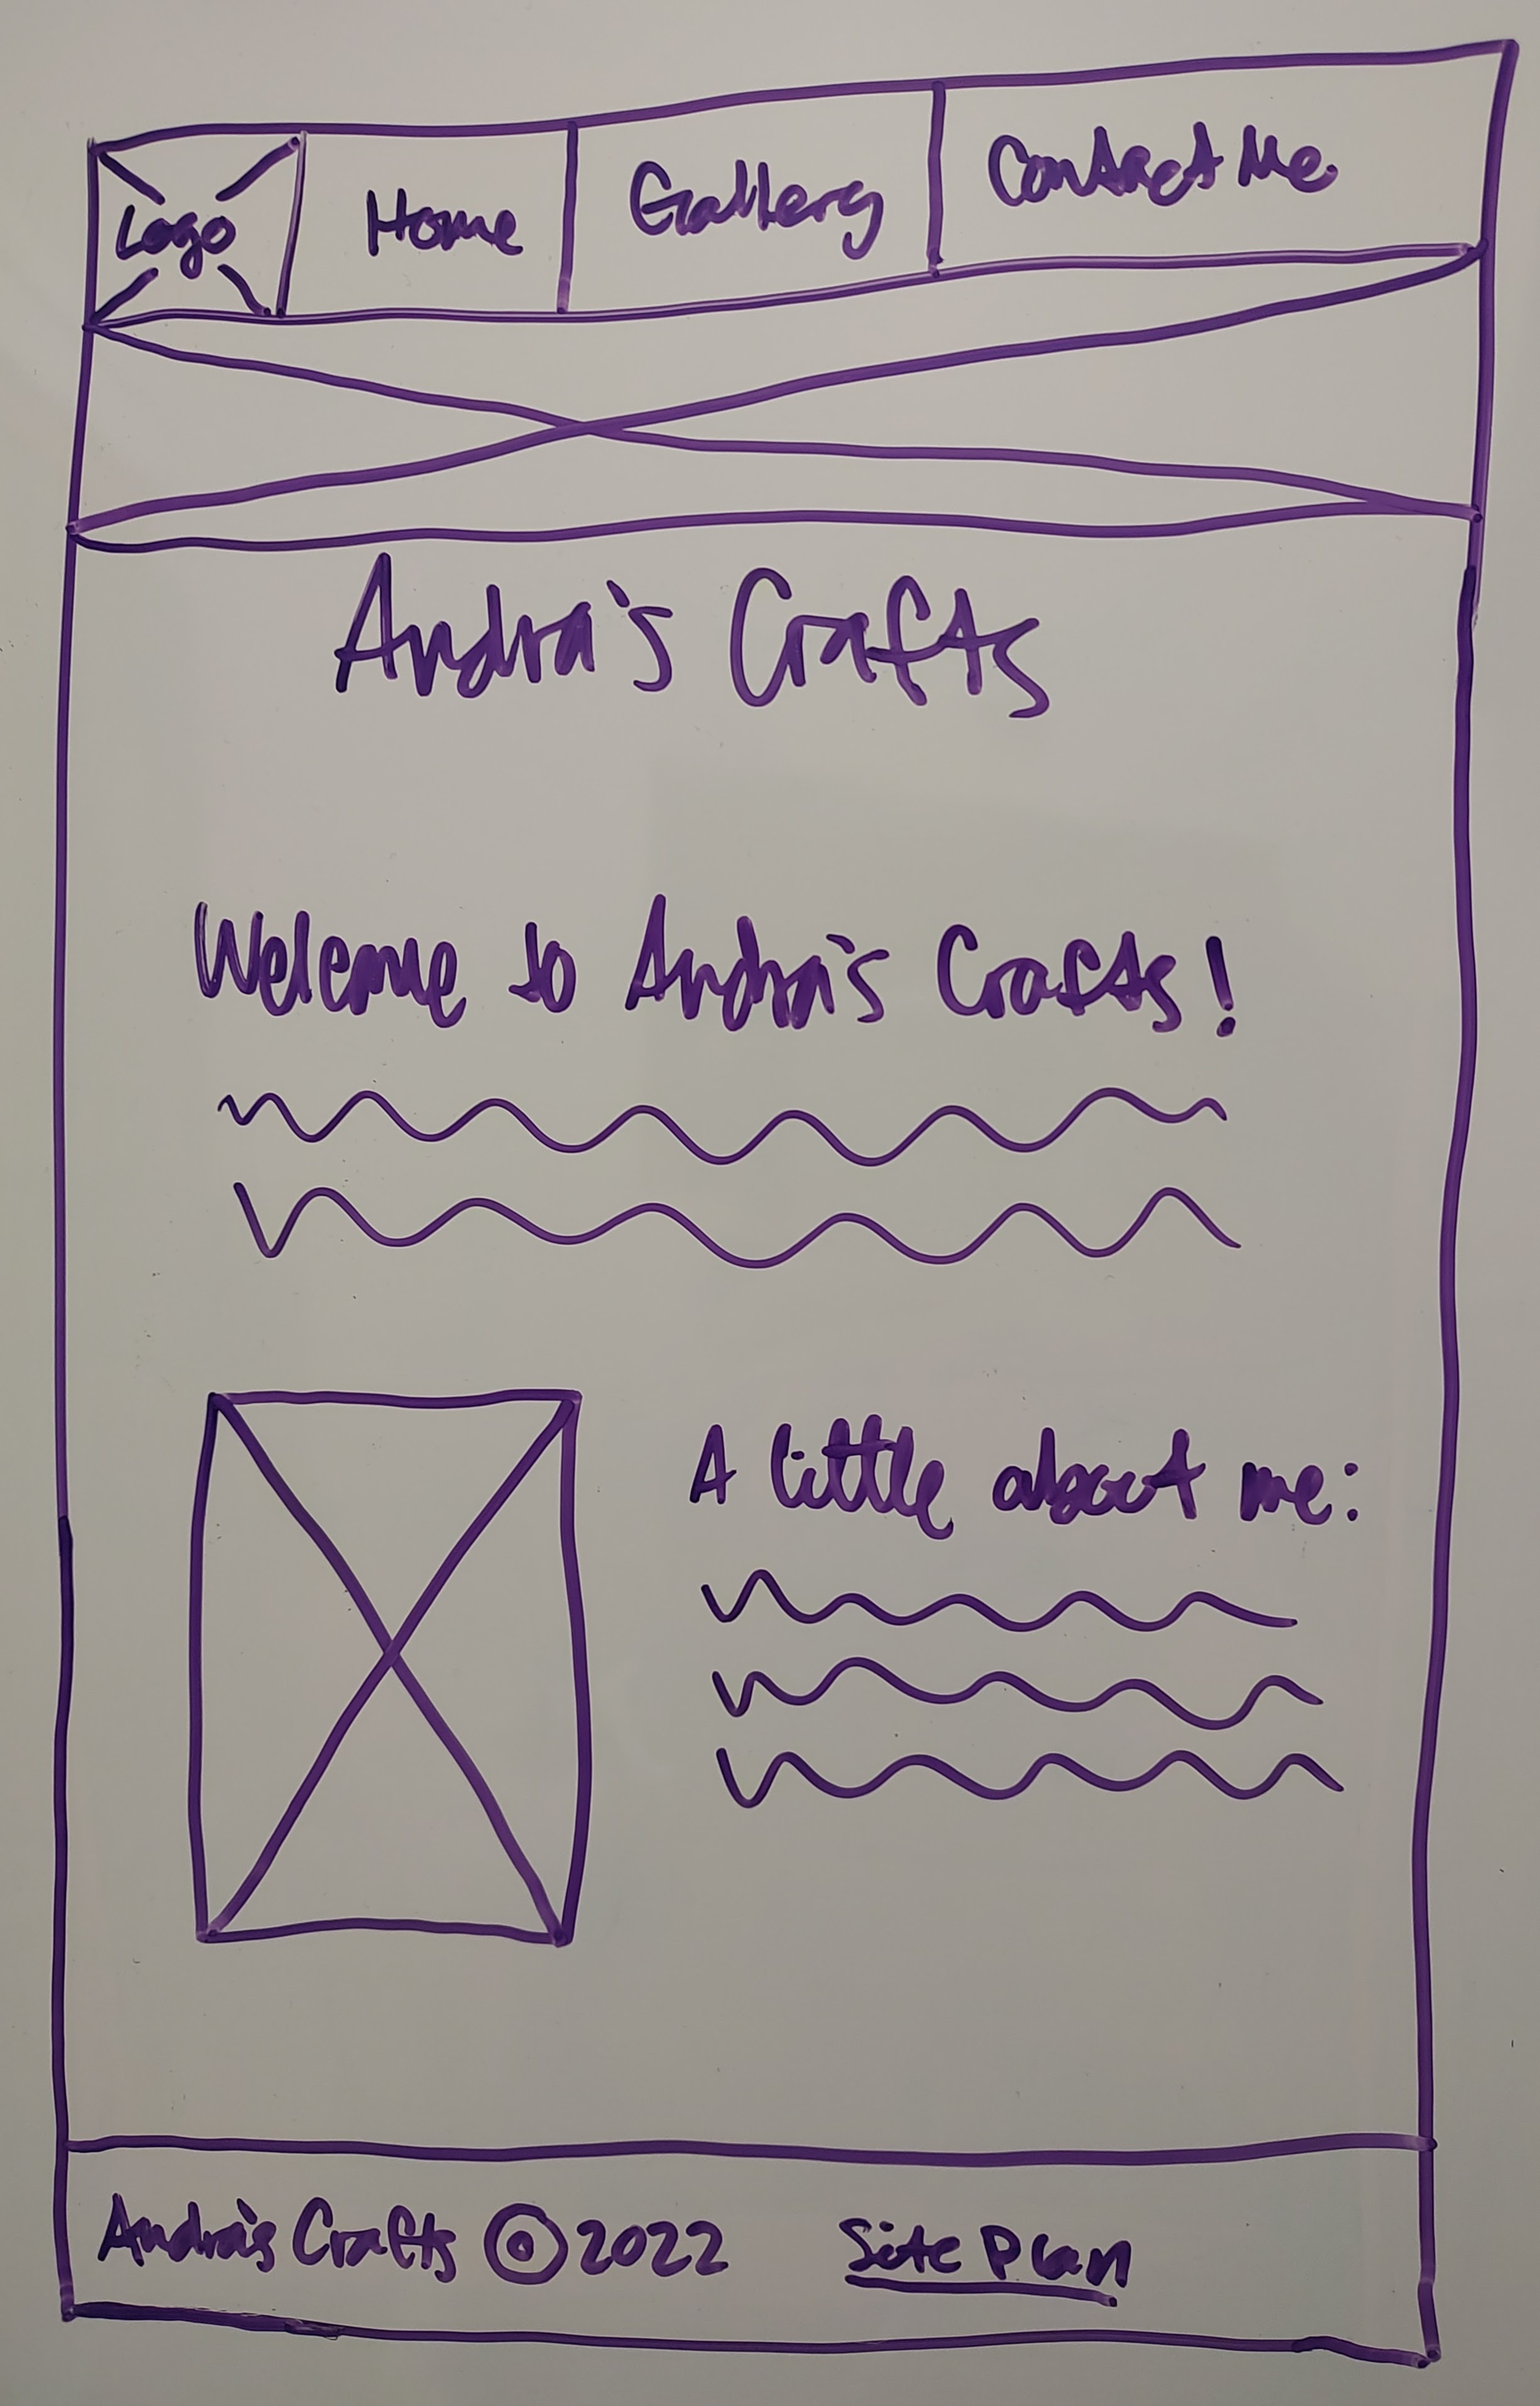 Logo Home Gallery Contact Me
Andra's Crafts
Welcome to Andra's Crafts!
A little about me:
Andra's Crafts © 2022 Site Plan